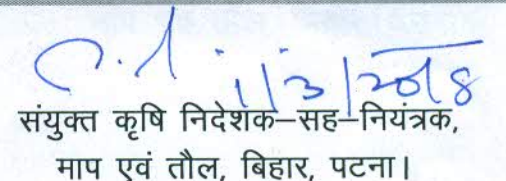 1/3/2018
संयुक्त कृषि निदेशक–सह–नियंत्रक,
माप एवं तौल, बिहार, पटना।